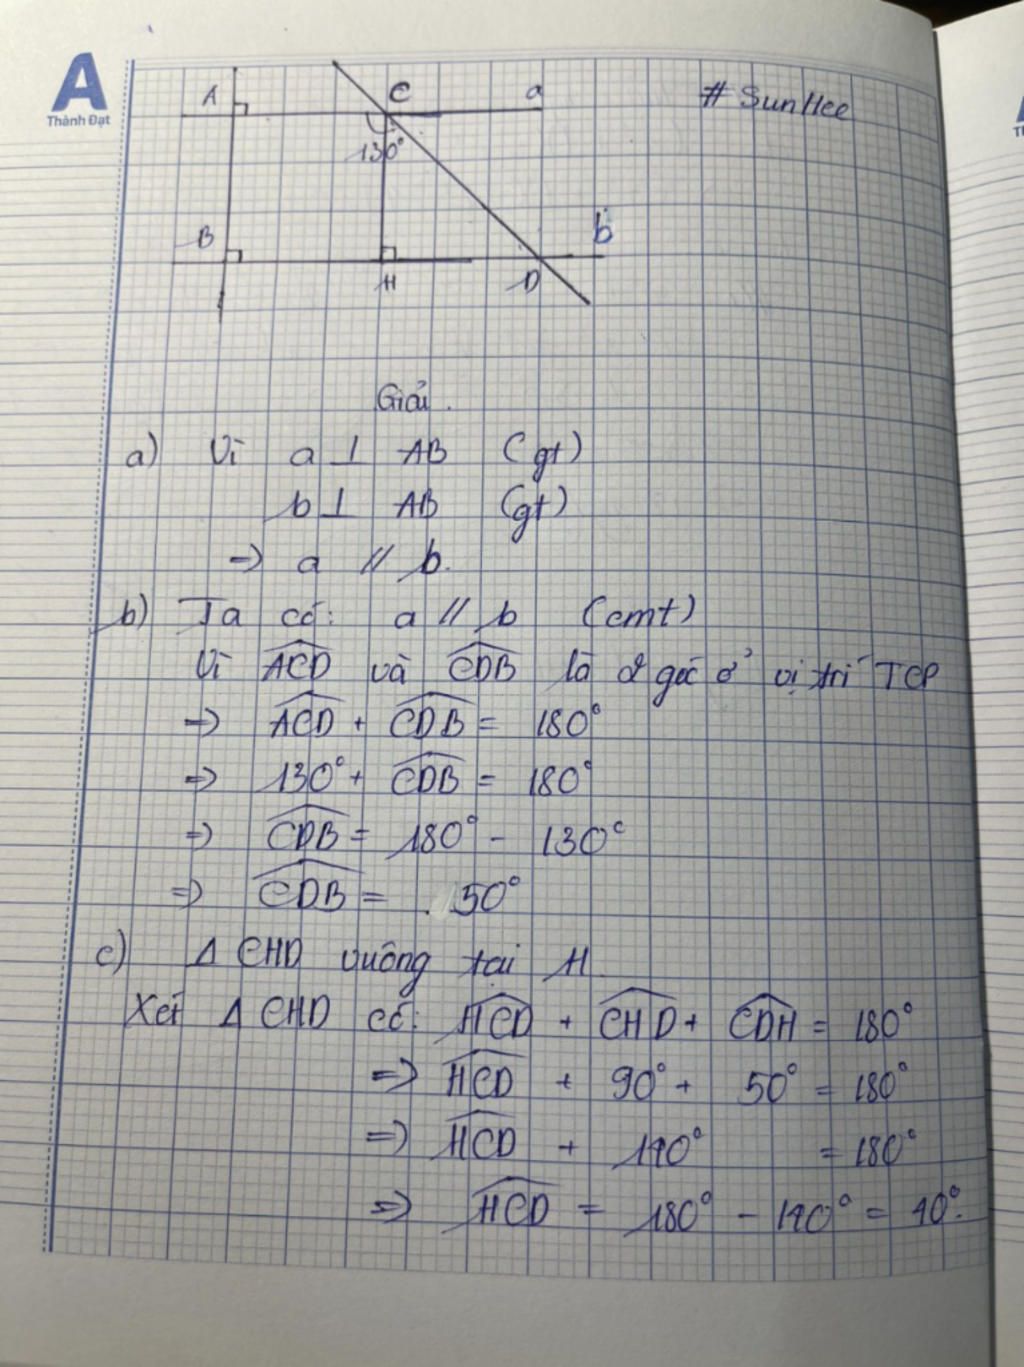 A
Thành Đạt
A C a # SunHee
130°
B b
H D
Giải.
a) Vì a ⊥ AB (gt)
b ⊥ AB (gt)
=> a // b.
b) Ta có: a // b (cmt)
Vì ACD và CDB là 2 góc ở vị trí TCP
=> ACD + CDB = 180°
=> 130° + CDB = 180°
=> CDB = 180° - 130°
=> CDB = 50°
c) Δ CHD vuông tại H
Xét Δ CHD có: HCD + CHD + CDH = 180°
=> HCD + 90° + 50° = 180°
=> HCD + 140° = 180°
=> HCD = 180° - 140° = 40°.